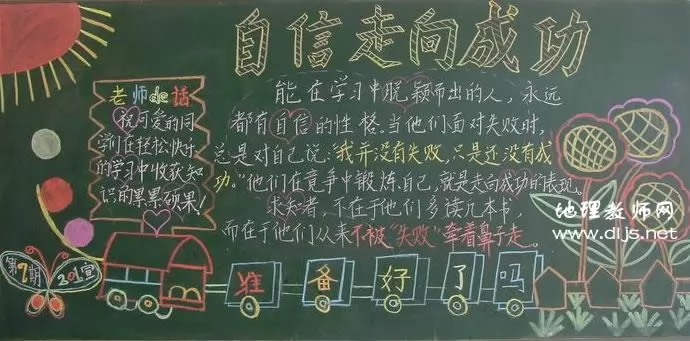 自信走向成功
老师de话
祝可爱的同
学们在轻松快乐
的学习中收获知
识的累累硕果!
能在学习中脱颖而出的人，永远
都有自信的性格。当他们面对失败时，
总是对自己说："我并没有失败，只是还没有成
功。"他们在竞争中锻炼自己，就是走向成功的表现。
求知者，不在于他们多读几本书，
而在于他们从来不被"失败"牵着鼻子走。
地理教师网
www.dljs.net
准备好了吗